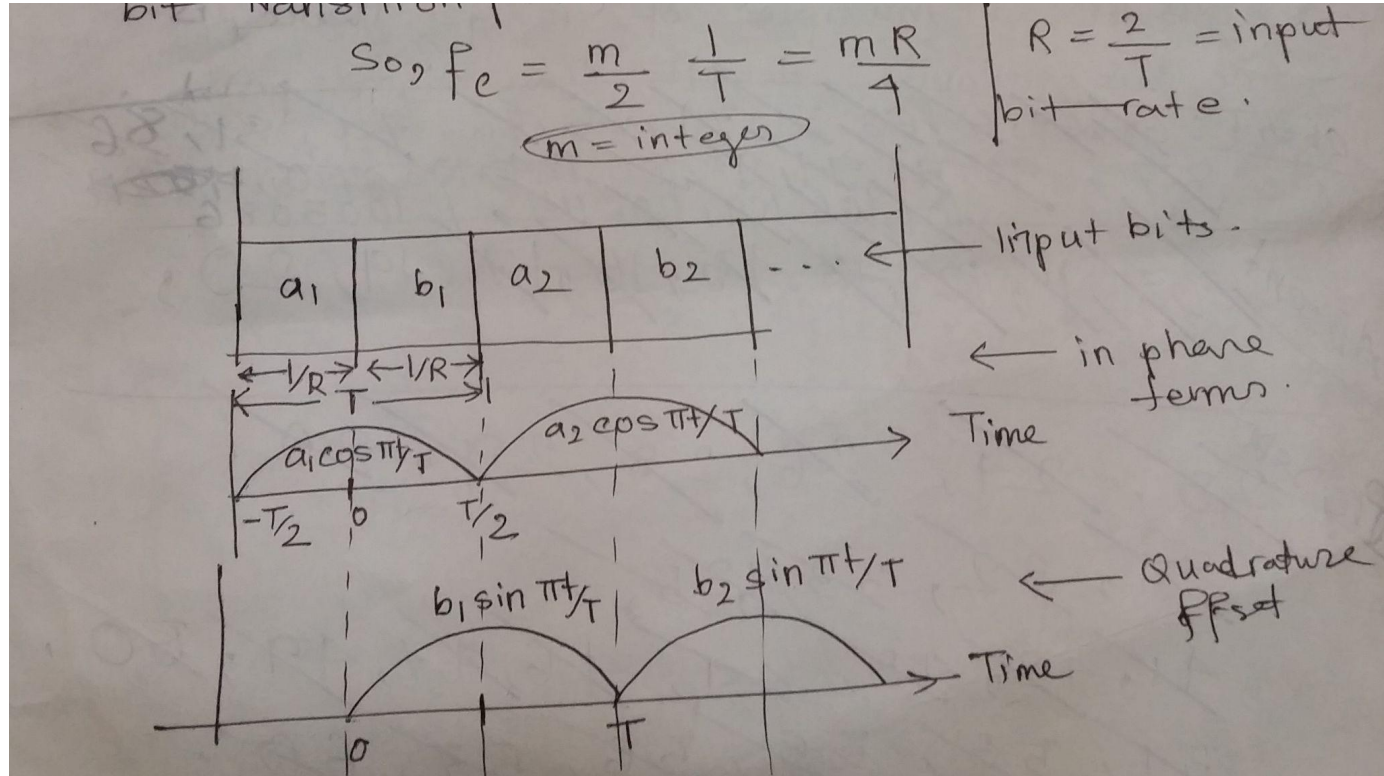 bit transition
So, fc = m/2 1/T = mR/4
m = integer
R = 2/T = input
bit rate.
a1 b1 a2 b2 ....
Input bits.
1/R 1/R
T
in phase
terms.
a1 cos πt/T a2 cos πt/T
Time
-T/2 0 T/2
b1 sin πt/T b2 sin πt/T
Quadrature
offset
Time
0 T